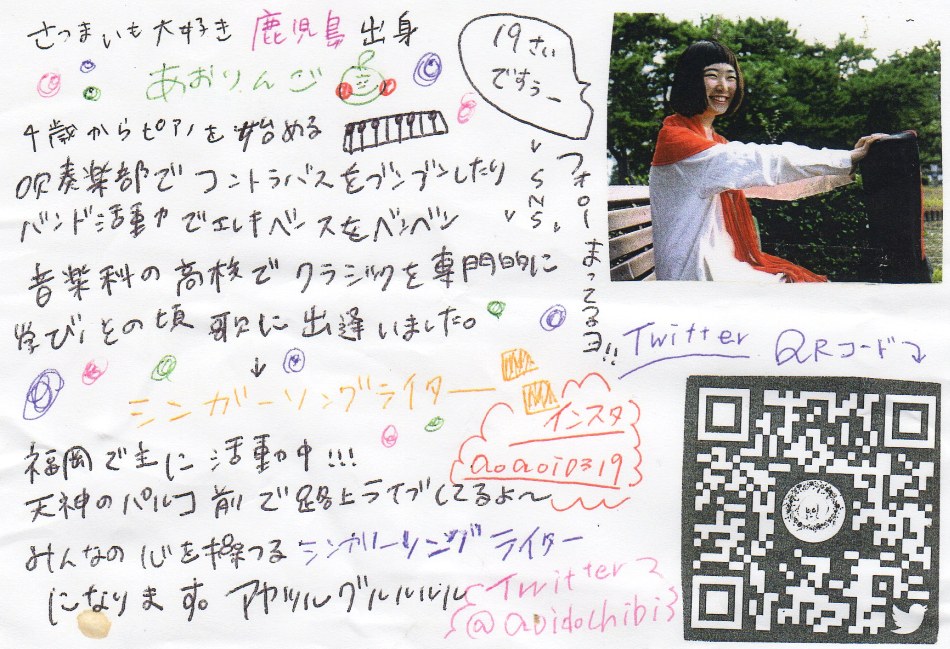 さつまいも大好き 鹿児島 出身
あおりんご
19さい
ですぅー
4歳からピアノを始める
吹奏楽部でコントラバスをブンブンしたり
バンド活動でエレキベースをベンベン
音楽科の高校でクラシックを専門的に
学び、その頃 歌に出逢いました。
↓
シンガーソングライター
SNS
フォローまってるヨ!!
Twitter QRコード
インスタ
aoaoi0319
福岡で主に活動中!!!
天神のパルコ前で路上ライブしてるよ〜
みんなの心を操つる シンガーソングライター
になります。アヤツルグルルルル
Twitter
@aoidochibi